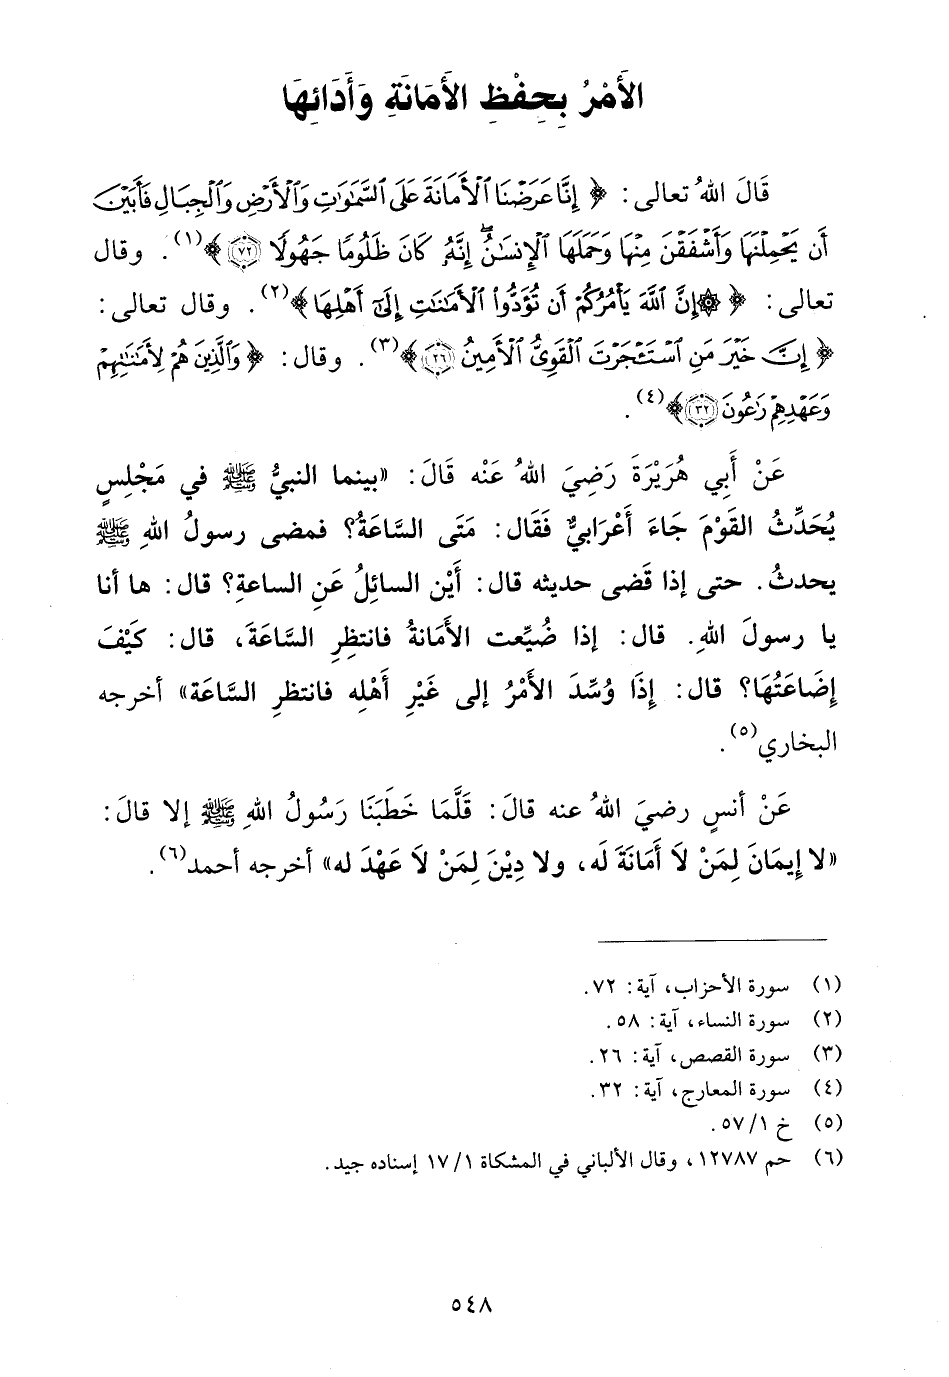 الأَمْرُ بِحِفْظِ الأَمَانَةِ وَأَدَائِهَا
قَالَ اللهُ تعالى: ﴿ إِنَّا عَرَضْنَا ٱلْأَمَانَةَ عَلَى ٱلسَّمَٰوَٰتِ وَٱلْأَرْضِ وَٱلْجِبَالِ فَأَبَيْنَ
أَن يَحْمِلْنَهَا وَأَشْفَقْنَ مِنْهَا وَحَمَلَهَا ٱلْإِنسَٰنُ ۖ إِنَّهُۥ كَانَ ظَلُومًا جَهُولًا ٧٢ ﴾(١). وقال
تعالى: ﴿ ۞ إِنَّ ٱللَّهَ يَأْمُرُكُمْ أَن تُؤَدُّوا۟ ٱلْأَمَٰنَٰتِ إِلَىٰٓ أَهْلِهَا ﴾(٢). وقال تعالى:
﴿ إِنَّ خَيْرَ مَنِ ٱسْتَـْٔجَرْتَ ٱلْقَوِىُّ ٱلْأَمِينُ ٢٦ ﴾(٣). وقال: ﴿ وَٱلَّذِينَ هُمْ لِأَمَٰنَٰتِهِمْ
وَعَهْدِهِمْ رَٰعُونَ ٣٢ ﴾(٤).
عَنْ أَبِي هُرَيْرَةَ رَضِيَ اللهُ عَنْه قَالَ: «بينما النبيُّ ﷺ في مَجْلِسٍ
يُحَدِّثُ القَوْمَ جَاءَ أَعْرَابيٌّ فَقَال: مَتَى السَّاعَةُ؟ فمضى رسولُ اللهِ ﷺ
يحدثُ. حتى إذا قَضى حديثه قال: أَيْن السائِلُ عَنِ الساعةِ؟ قال: ها أنا
يا رسولَ اللهِ. قال: إذا ضُيِّعت الأَمَانةُ فانتظِرِ السَّاعَةَ، قال: كَيْفَ
إِضَاعَتُهَا؟ قال: إِذَا وُسِّدَ الأَمْرُ إلى غَيْرِ أَهْلِه فانتظرِ السَّاعَة» أخرجه
البخاري(٥).
عَنْ أنسٍ رضيَ اللهُ عنه قالَ: قَلَّمَا خَطَبَنَا رَسُولُ اللهِ ﷺ إلا قالَ:
«لا إِيمَانَ لِمَنْ لاَ أَمَانَةَ لَه، ولا دِيْنَ لِمَنْ لاَ عَهْدَ له» أخرجه أحمد(٦).
(١) سورة الأحزاب، آية: ٧٢.
(٢) سورة النساء، آية: ٥٨.
(٣) سورة القصص، آية: ٢٦.
(٤) سورة المعارج، آية: ٣٢.
(٥) خ ٥٧/١.
(٦) حم ١٢٧٨٧، وقال الألباني في المشكاة ١٧/١ إسناده جيد.
٥٤٨